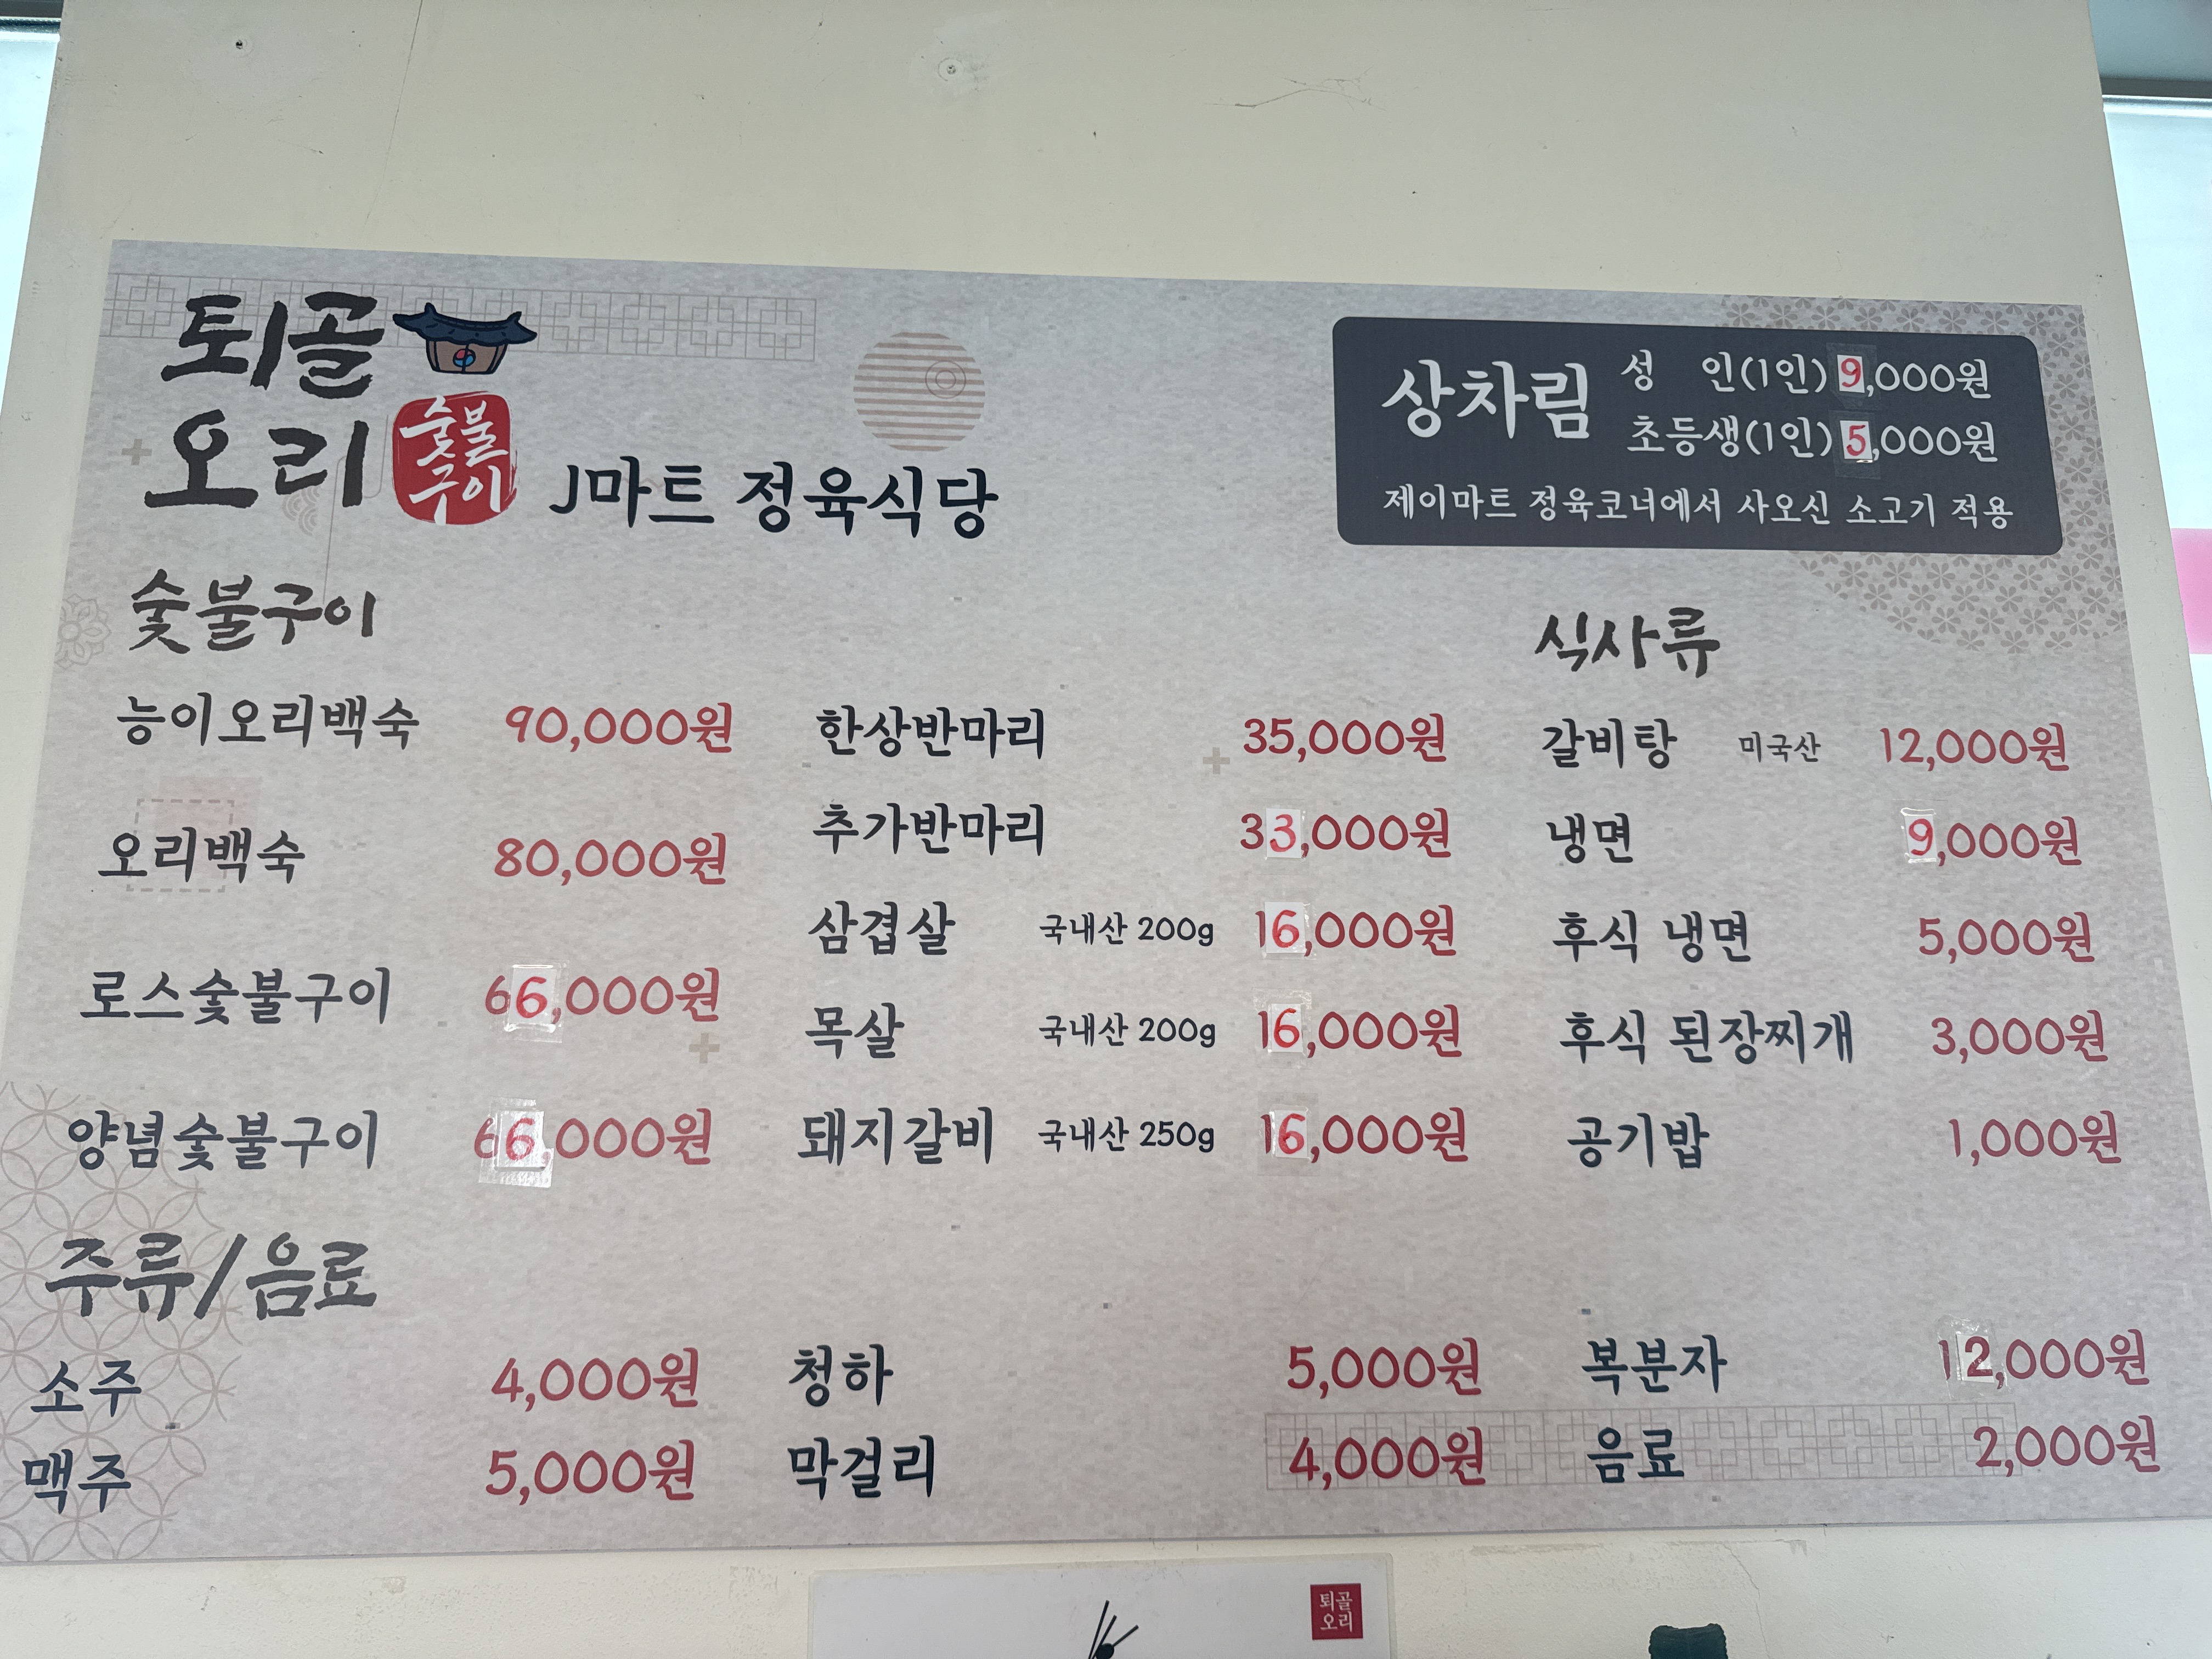 퇴골
오리 숯불
구이
J마트 정육식당
상차림 성 인(1인) 9,000원
초등생(1인) 5,000원
제이마트 정육코너에서 사오신 소고기 적용
숯불구이
능이오리백숙 90,000원
오리백숙 80,000원
로스숯불구이 66,000원
양념숯불구이 66,000원
한상반마리 35,000원
추가반마리 33,000원
삼겹살 국내산 200g 16,000원
목살 국내산 200g 16,000원
돼지갈비 국내산 250g 16,000원
식사류
갈비탕 미국산 12,000원
냉면 9,000원
후식 냉면 5,000원
후식 된장찌개 3,000원
공기밥 1,000원
주류/음료
소주 4,000원
맥주 5,000원
청하 5,000원
막걸리 4,000원
복분자 12,000원
음료 2,000원
퇴골
오리